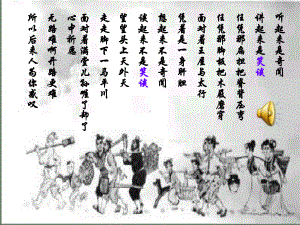 听起来是奇闻
讲起来是笑谈
任凭那扁担把脊背压弯
任凭那脚板把木屐磨穿
面对着王屋与太行
凭着是一身肝胆
想起来不是奇闻
谈起来不是笑谈
望望头上天外天
走走脚下一马平川
面对着满堂儿孙了却了
心中祈愿
无路难啊开路更难
所以后来人为你感叹